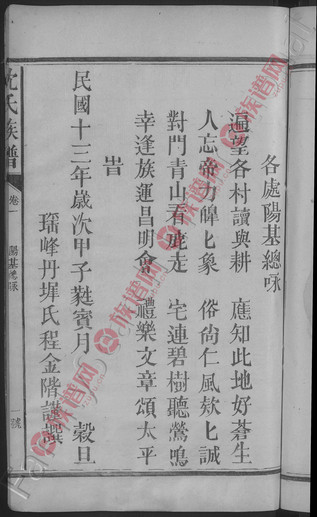 各處陽基總咏
遍望各村讀與耕 應知此地好蒼生
人忘帝力皥匕象 俗尙仁風欸匕誠
對門青山看鹿走 宅連碧樹聽鶯鳴
幸逢族運昌明會 禮樂文章頌太平
旹
民國十三年歲次甲子蕤賓月 穀旦
瑶峰丹墀氏程金階謹撰
沈氏族譜 卷一 陽基總咏 號
族谱网
族谱网